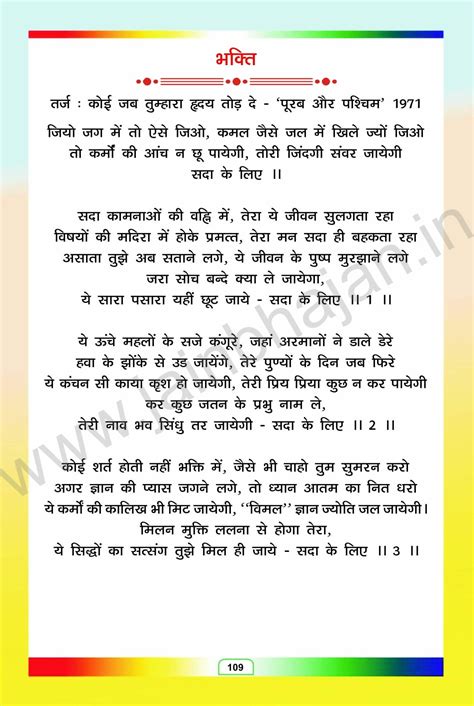 भक्ति
तर्ज : कोई जब तुम्हारा हृदय तोड़ दे - ‘पूरब और पश्चिम’ 1971
जियो जग में तो ऐसे जिओ, कमल जैसे जल में खिले ज्यों जिओ
तो कर्मों की आंच न छू पायेगी, तोरी जिंदगी संवर जायेगी
सदा के लिए ।।
सदा कामनाओं की वह्नि में, तेरा ये जीवन सुलगता रहा
विषयों की मदिरा में होके प्रमत्त, तेरा मन सदा ही बहकता रहा
असाता तुझे अब सताने लगे, ये जीवन के पुष्प मुरझाने लगे
जरा सोच बन्दे क्या ले जायेगा,
ये सारा पसारा यहीं छूट जाये - सदा के लिए ।। 1 ।।
ये ऊंचे महलों के सजे कंगूरे, जहां अरमानों ने डाले डेरे
हवा के झोंके से उड जायेंगे, तेरे पुण्यों के दिन जब फिरे
ये कंचन सी काया कृश हो जायेगी, तेरी प्रिय प्रिया कुछ न कर पायेगी
कर कुछ जतन के प्रभु नाम ले,
तेरी नाव भव सिंधु तर जायेगी - सदा के लिए ।। 2 ।।
कोई शर्त होती नहीं भक्ति में, जैसे भी चाहो तुम सुमरन करो
अगर ज्ञान की प्यास जगने लगे, तो ध्यान आतम का नित धरो
ये कर्मों की कालिख भी मिट जायेगी, ‘‘विमल’’ ज्ञान ज्योति जल जायेगी।
मिलन मुक्ति ललना से होगा तेरा,
ये सिद्धों का सत्संग तुझे मिल ही जाये - सदा के लिए ।। 3 ।।
www.jainbhajan.in
109